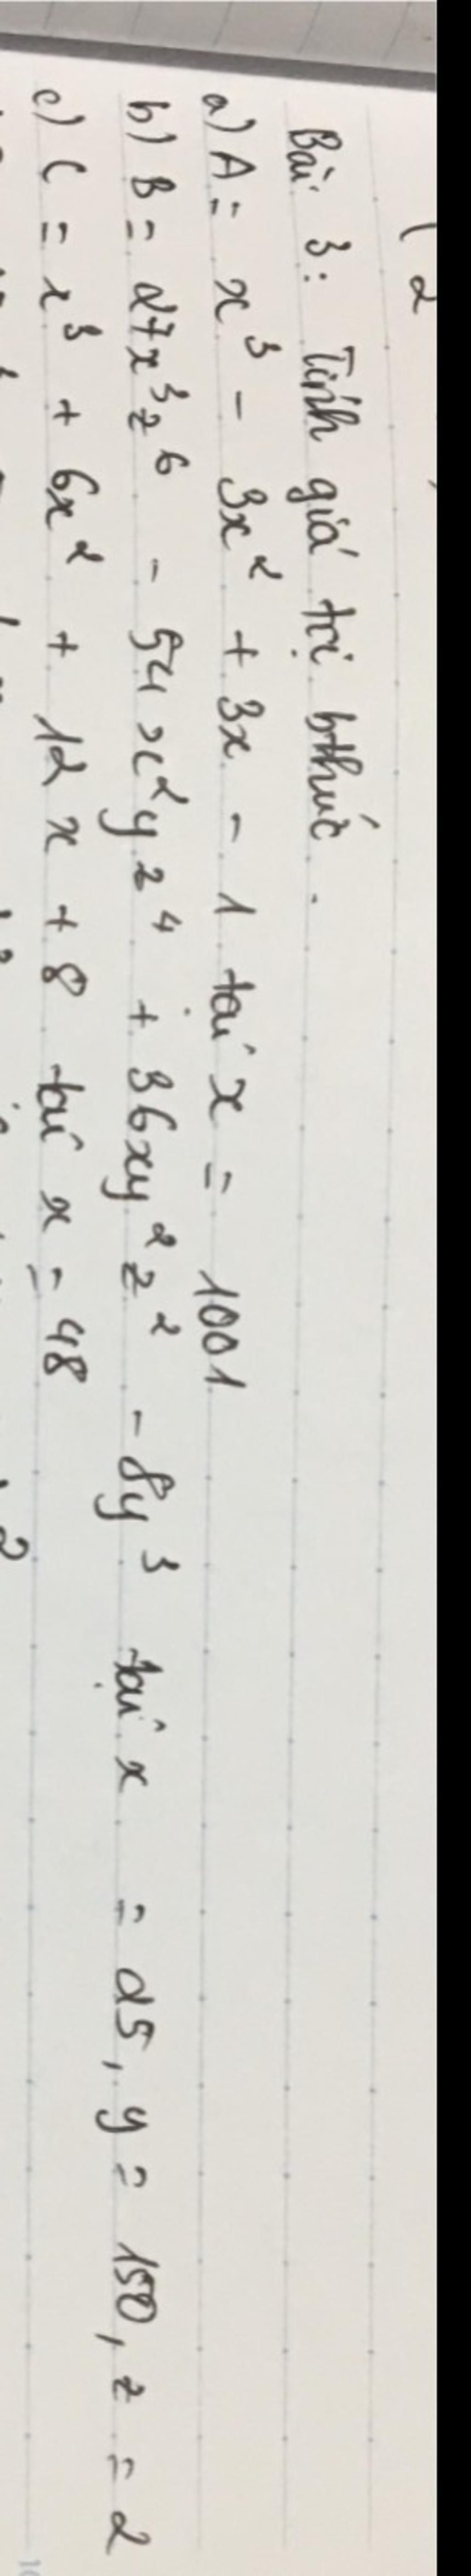 ( 2
Bài 3: Tính giá trị bthức.
a) A = x³ - 3x² + 3x - 1 tại x = 1001
b) B = 27x³z⁶ - 54x²yz⁴ + 36xy²z² - 8y³ tại x = 25, y = 150, z = 2
c) C = x³ + 6x² + 12x + 8 tại x = 48